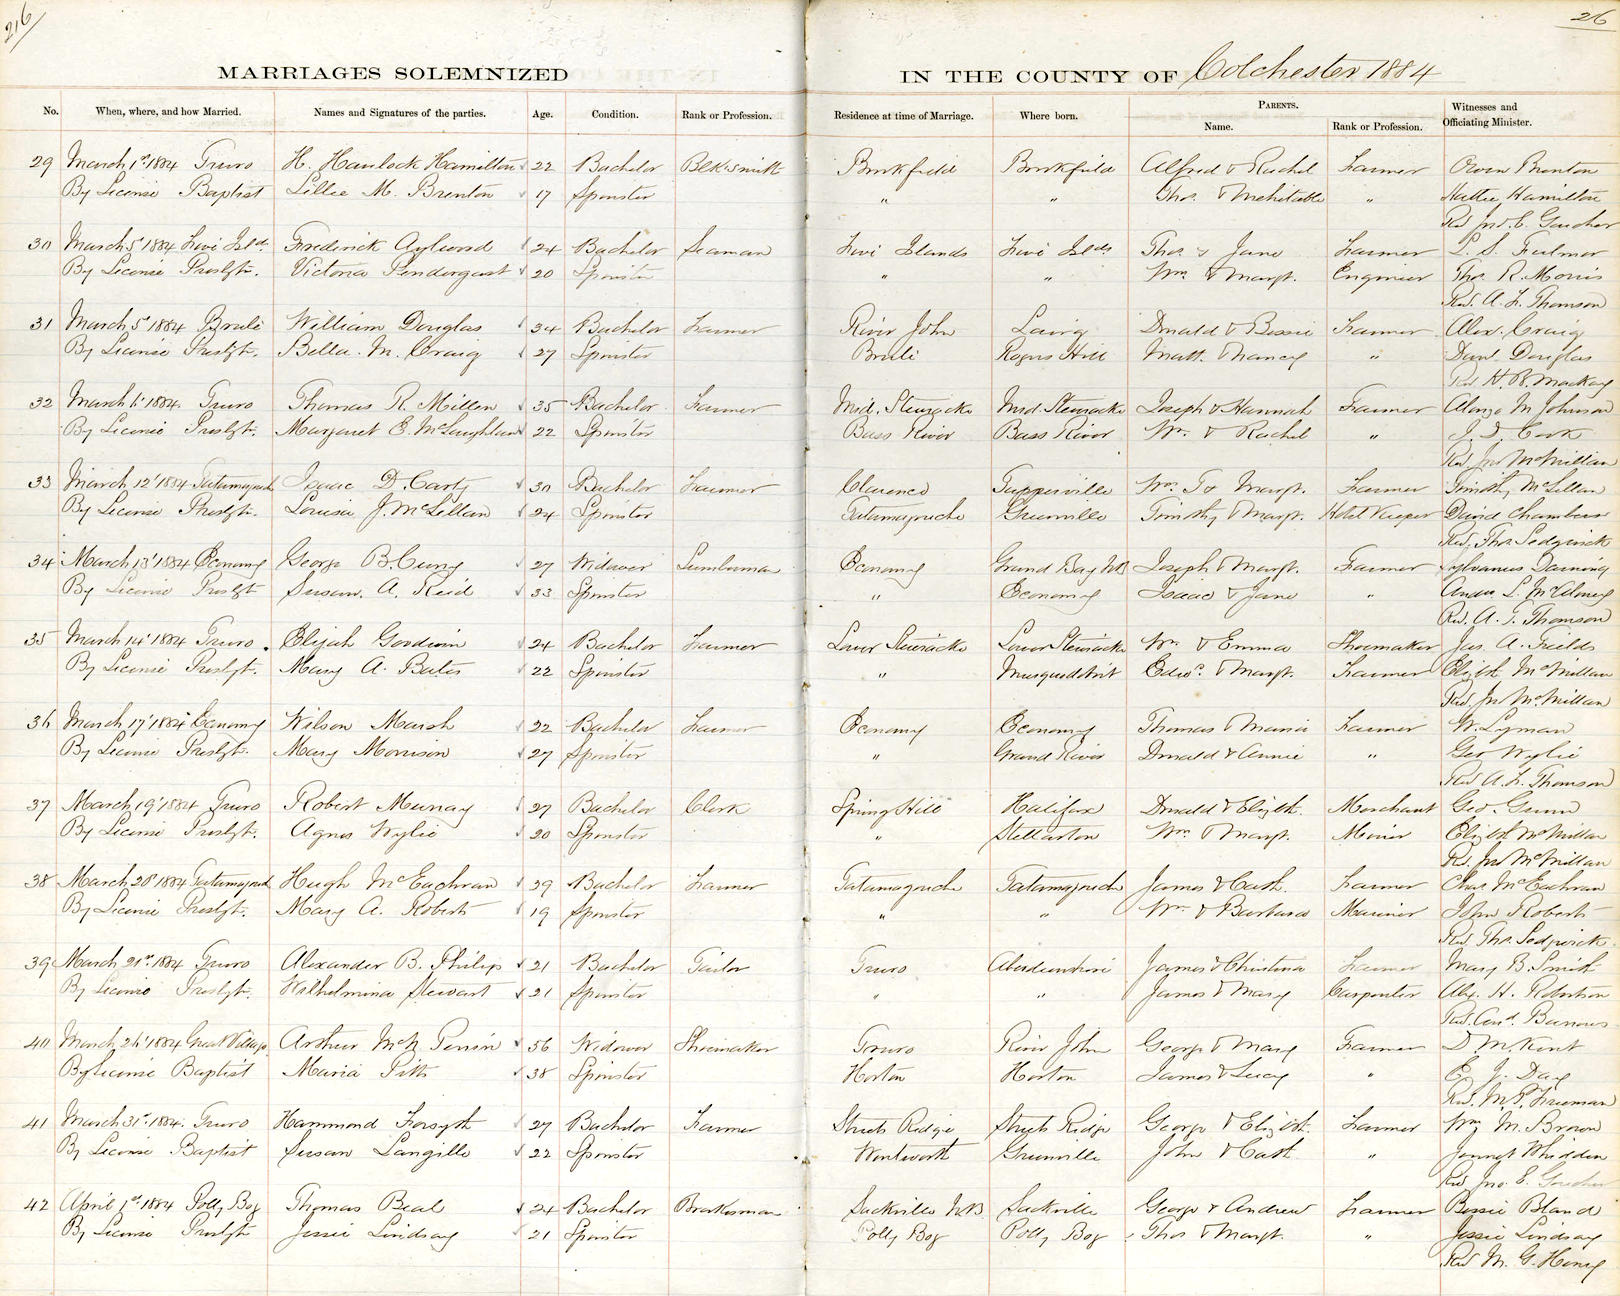 216
26
MARRIAGES SOLEMNIZED IN THE COUNTY OF Colchester 1884
No. When, where, and how Married. Names and Signatures of the parties. Age. Condition. Rank or Profession. Residence at time of Marriage. Where born. PARENTS. Name. Rank or Profession. Witnesses and Officiating Minister.
29 March 1st 1884 Truro H. Havelock Hamilton 22 Bachelor Blk.smith Brookfield Brookfield Alfred & Rachel Farmer Owen Brenton
By License Baptist Lillie M. Brenton 17 Spinster " " Thos. & Mehitable " Hattie Hamilton
Rev Jno. E. Goucher
30 March 5' 1884 Five Islds. Frederick Aylward 24 Bachelor Seaman Five Islands Five Islds. Thos. & Jane Farmer L. S. Fulmer
By License Presbyt. Victoria Pendergast 20 Spinster " " Wm. & Margt. Engineer Thos. R. Morris
Rev. A. F. Thomson
31 March 5' 1884 Brule William Douglas 34 Bachelor Farmer River John Lairg Donald & Bessie Farmer Alex. Craig
By License Presbyt. Bella M. Craig 27 Spinster Brule Rogers Hill Matt. & Nancy " Danl. Douglas
Rev H. B. Mackay
32 March 6' 1884 Truro Thomas R. Millen 35 Bachelor Farmer Mid. Stewiacke Mid. Stewiacke Joseph & Hannah Farmer Alonzo M. Johnson
By License Presbyt. Margaret E. McLaughlan 22 Spinster Bass River Bass River Wm. & Rachel " J. D. Cook
Rev. Jno McMillan
33 March 12' 1884 Tatamagouche Isaac D. Carty 30 Bachelor Farmer Clarence Tupperville Wm. T & Margt. Farmer Timothy McLellan
By License Presbyt. Louisa J. McLellan 24 Spinster Tatamagouche Greenville Timothy & Margt. Hotel Keeper David Chambers
Rev. Thos. Sedgwick
34 March 13' 1884 Economy George B. 27 Widower Lumberman Economy Grand Bay NB Joseph & Margt. Farmer Sylvanus
By License Presbyt Susan A. Reid 33 Spinster " Economy Isaac & Jane " Andw L. McAloney
Rev. A. F. Thomson
35 March 14' 1884 Truro. Elijah Goodwin 24 Bachelor Farmer Lower Stewiacke Lower Stewiacke Wm. & Emma Shoemaker Jas. A. Fields
By License Presbyt. Mary A. Bates 22 Spinster " Musquodoboit Edwd. & Margt. Farmer Elizbth McMillan
Rev. Jno McMillan
36 March 17' 1884 Economy Wilson Marsh 22 Bachelor Farmer Economy Economy Thomas & Maria Farmer W. Lyman
By License Presbyt. Mary Morrison 27 Spinster " Grand River Donald & Annie " Geo Wylie
Rev A. F. Thomson
37 March 19' 1884 Truro Robert Murray 27 Bachelor Clerk Spring Hill Halifax Donald & Elizbth. Merchant Geo. Gunn
By License Presbyt. Agnes Wylie 20 Spinster " Stellarton Wm. & Margt. Miner Elizbth. McMillan
Rev. Jno McMillan
38 March 20' 1884 Tatamagouche Hugh McEachran 29 Bachelor Farmer Tatamagouche Tatamagouche James & Cath. Farmer Chas. McEachran
By License Presbyt. Mary A. Roberts 19 Spinster " " Wm. & Barbara Mariner John Roberts
Rev. Thos. Sedgwick
39 March 21st. 1884 Truro Alexander B. Philip 21 Bachelor Tailor Truro Aberdeenshire James & Christina Farmer Mary B. Smith
By License Presbyt. Wilhelmina Stewart 21 Spinster " " James & Mary Carpenter Alex. H. Robertson
Rev. And. Burrows
40 March 26' 1884 Great Village Arthur McN Perrin 56 Widower Shoemaker Truro River John George & Mary Farmer D. M. Kent
By License Baptist Maria Pitts 38 Spinster Horton Horton James & Lucy " E. J. Day
Rev. M. P. Freeman
41 March 31st. 1884. Truro Hammond Forsyth 27 Bachelor Farmer Streets Ridge Streets Ridge George & Elizbth. Farmer Wm M. Brown
By License Baptist Susan Langille 22 Spinster Wentworth Greenville John & Cath " Whidden
Rev Jno. E. Goucher
42 April 1st 1884 Polly Bog Thomas Beal 24 Bachelor Brakesman Sackville N.B. Sackville George & Andrew Farmer Bessie Bland
By License Presbyt Jessie Lindsay 21 Spinster Polly Bog Polly Bog Thos & Margt. " Jessie Lindsay
Rev M. G. Henry